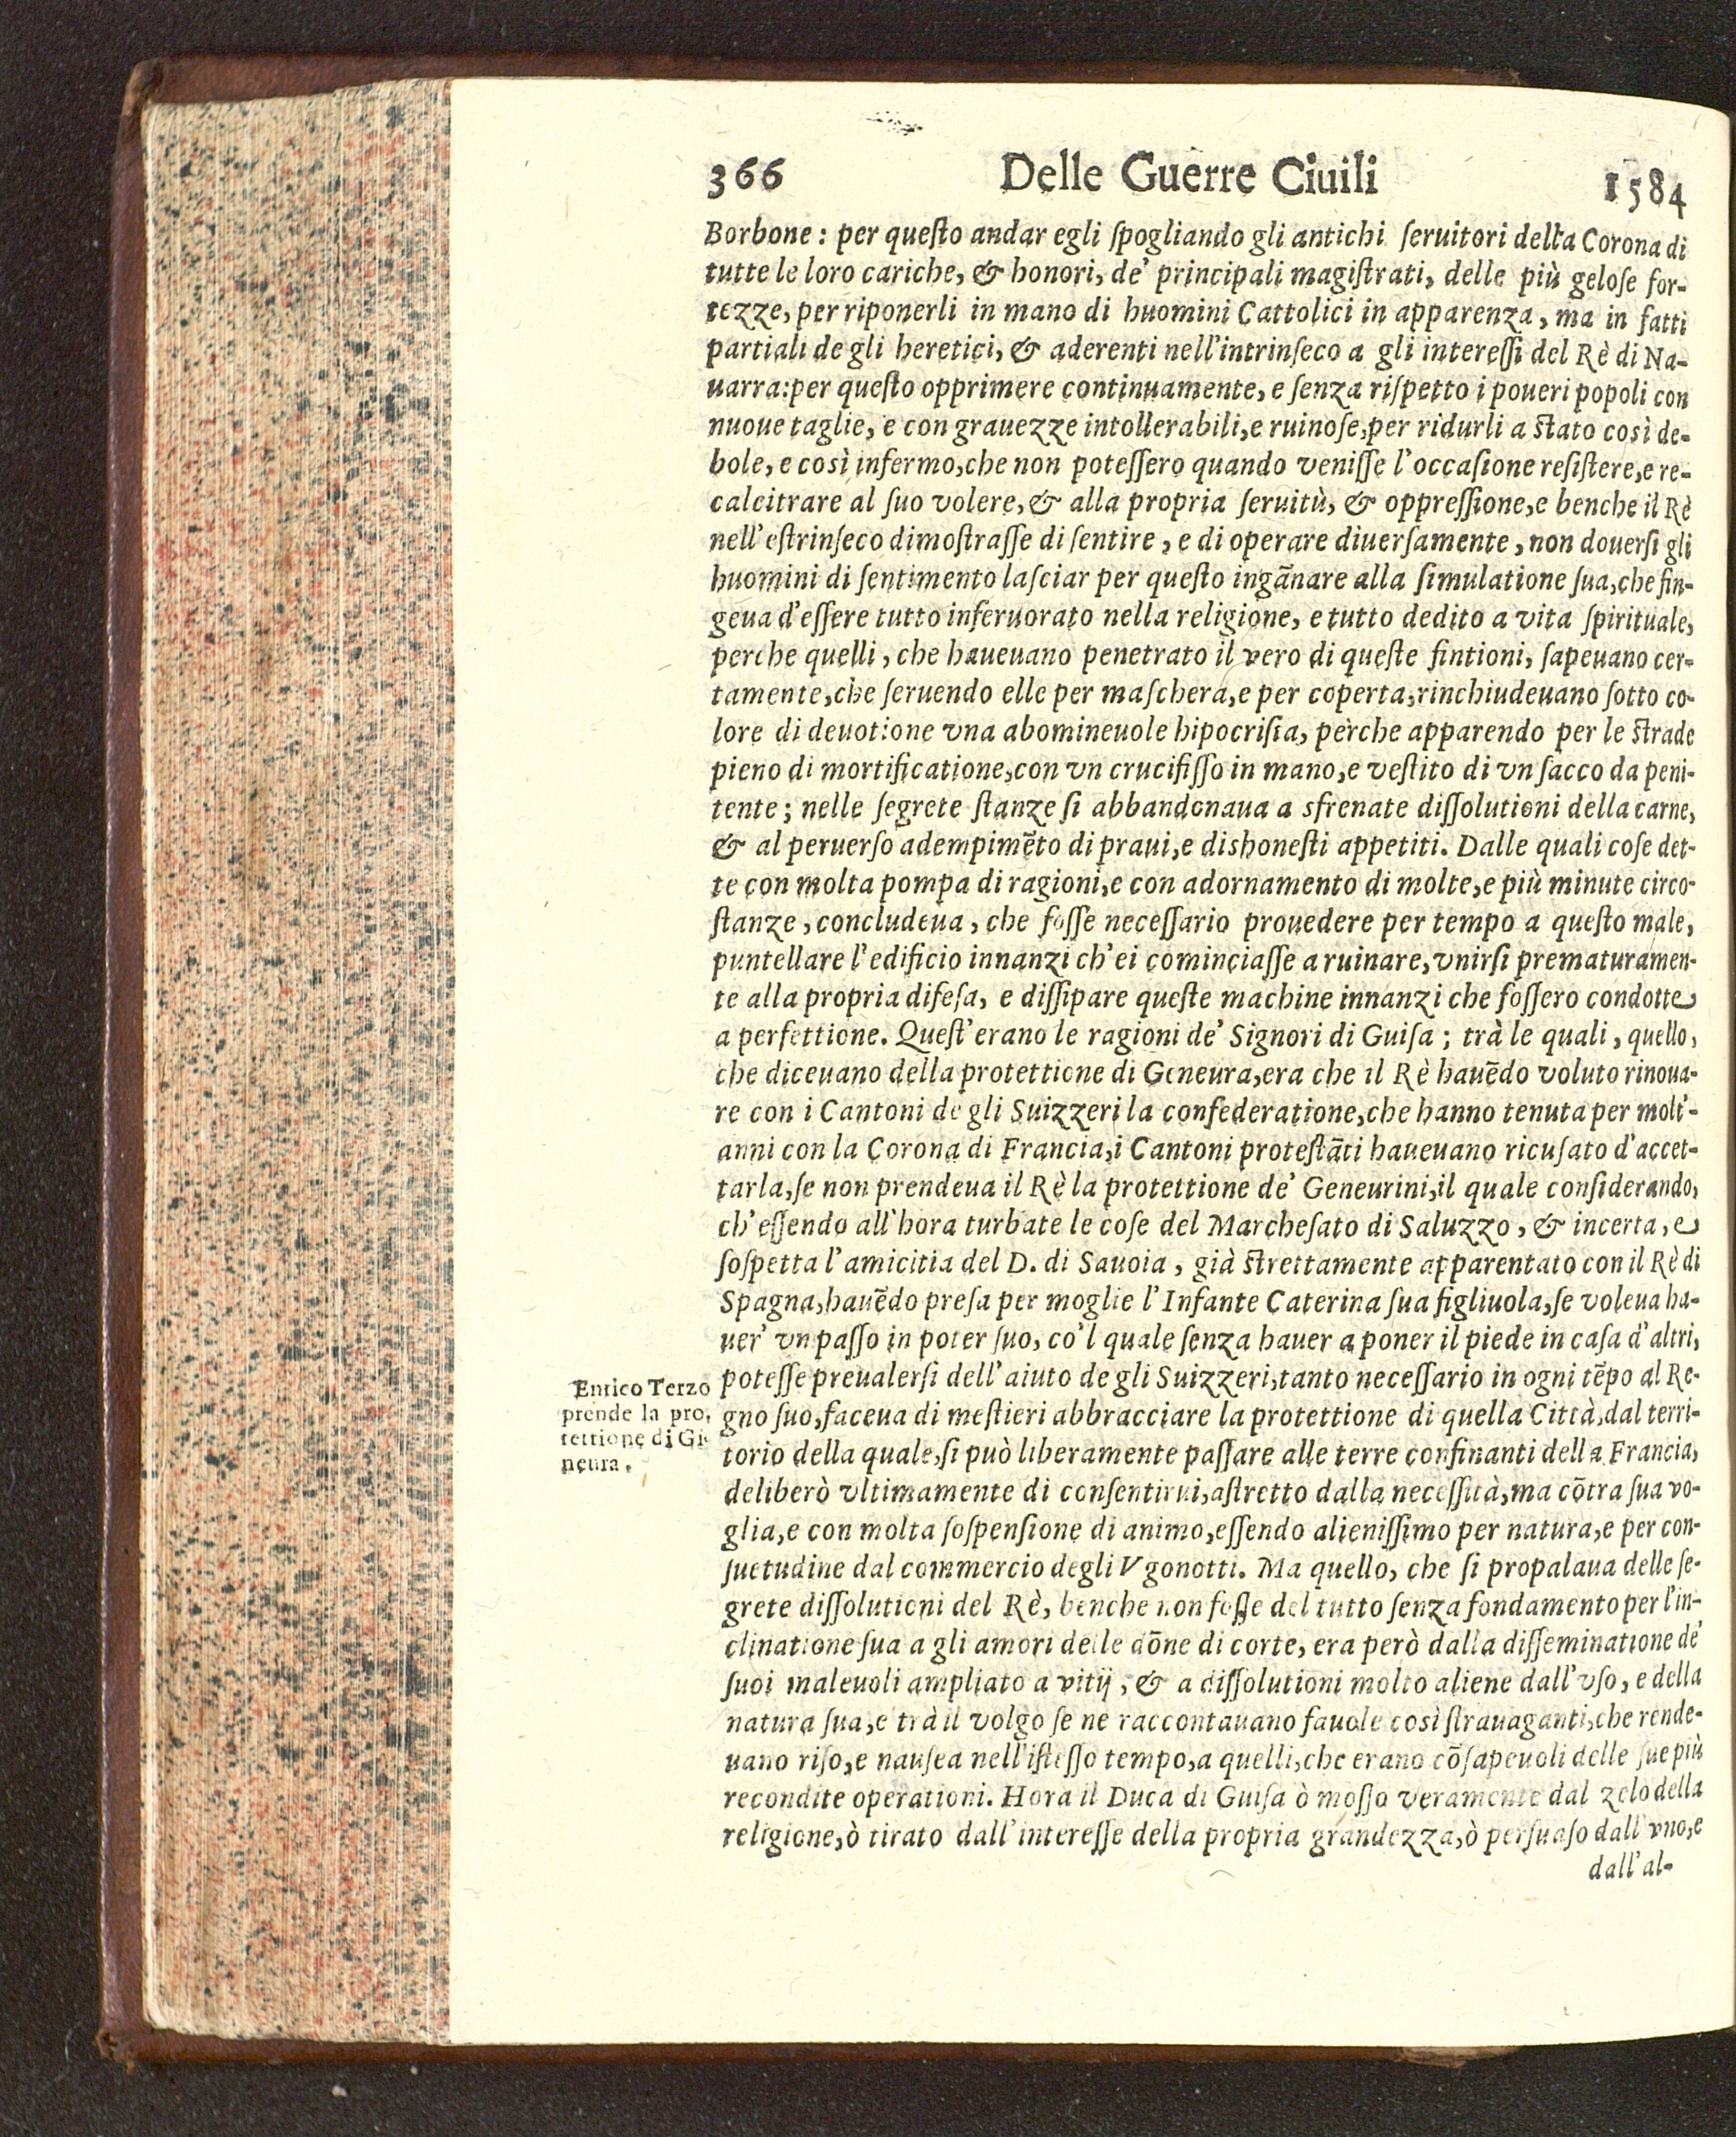 366 Delle Guerre Ciuili 1584
Borbone: per queſto andar egli ſpogliando gli antichi ſeruitori della Corona di
tutte le loro cariche, & honori, de' principali magiſtrati, delle più geloſe for-
tezze, per riponerli in mano di huomini Cattolici in apparenza, ma in fatti
partiali de gli heretici, & aderenti nell'intrinſeco a gli intereſſi del Rè di Na-
uarra: per queſto opprimere continuamente, e ſenza riſpetto i poueri popoli con
nuoue taglie, e con grauezze intollerabili, e ruinoſe, per ridurli a ſtato così de-
bole, e così infermo, che non poteſſero quando veniſſe l'occaſione reſiſtere, e re-
calcitrare al ſuo volere, & alla propria ſeruitù, & oppreſſione, e benche il Rè
nell'eſtrinſeco dimoſtraſſe di ſentire, e di operare diuerſamente, non douerſi gli
huomini di ſentimento laſciar per queſto ingãnare alla ſimulatione ſua, che fin-
geua d'eſſere tutto inferuorato nella religione, e tutto dedito a vita ſpirituale,
perche quelli, che haueuano penetrato il vero di queſte fintioni, ſapeuano cer-
tamente, che ſeruendo elle per maſchera, e per coperta, rinchiudeuano ſotto co-
lore di deuotione vna abomineuole hipocriſia, perche apparendo per le ſtrade
pieno di mortificatione, con vn crucifiſſo in mano, e veſtito di vn ſacco da peni-
tente; nelle ſegrete ſtanze ſi abbandonaua a sfrenate diſſolutioni della carne,
& al peruerſo adempimẽto di praui, e dishoneſti appetiti. Dalle quali coſe det-
te con molta pompa di ragioni, e con adornamento di molte, e più minute circo-
ſtanze, concludeua, che foſſe neceſſario prouedere per tempo a queſto male,
puntellare l'edificio innanzi ch'ei cominciaſſe a ruinare, vnirſi prematuramen-
te alla propria difeſa, e diſſipare queſte machine innanzi che foſſero condotte
a perfettione. Queſt'erano le ragioni de' Signori di Guiſa; trà le quali, quello,
che diceuano della protettione di Geneura, era che il Rè hauẽdo voluto rinoua-
re con i Cantoni de gli Suizzeri la confederatione, che hanno tenuta per molt'-
anni con la Corona di Francia, i Cantoni proteſtãti haueuano ricuſato d'accet-
tarla, ſe non prendeua il Rè la protettione de' Geneurini, il quale conſiderando,
ch'eſſendo all'hora turbate le coſe del Marcheſato di Saluzzo, & incerta, e
ſoſpetta l'amicitia del D. di Sauoia, già ſtrettamente apparentato con il Rè di
Spagna, hauẽdo preſa per moglie l'Infante Caterina ſua figliuola, ſe voleua ha-
uer' vn paſſo in poter ſuo, co'l quale ſenza hauer a poner il piede in caſa d'altri,
poteſſe preualerſi dell'aiuto de gli Suizzeri, tanto neceſſario in ogni tẽpo al Re-
gno ſuo, faceua di meſtieri abbracciare la protettione di quella Città, dal terri-
torio della quale, ſi può liberamente paſſare alle terre confinanti della Francia,
deliberò vltimamente di conſentirui, aſtretto dalla neceſſità, ma cõtra ſua vo-
glia, e con molta ſoſpenſione di animo, eſſendo alieniſſimo per natura, e per con-
ſuetudine dal commercio degli Vgonotti. Ma quello, che ſi propalaua delle ſe-
grete diſſolutioni del Rè, benche non foſſe del tutto ſenza fondamento per l'in-
clinatione ſua a gli amori delle dõne di corte, era però dalla diſſeminatione de'
ſuoi maleuoli ampliato a vitij, & a diſſolutioni molto aliene dall'vſo, e della
natura ſua, e trà il volgo ſe ne raccontauano fauole così ſtrauaganti, che rende-
uano riſo, e nauſea nell'iſteſſo tempo, a quelli, che erano cõſapeuoli delle ſue più
recondite operationi. Hora il Duca di Guiſa ò moſſo veramente dal zelo della
religione, ò tirato dall'intereſſe della propria grandezza, ò perſuaſo dall'vno, e
dall'al-
Enrico Terzo
prende la pro-
tettione di Gi-
neura.